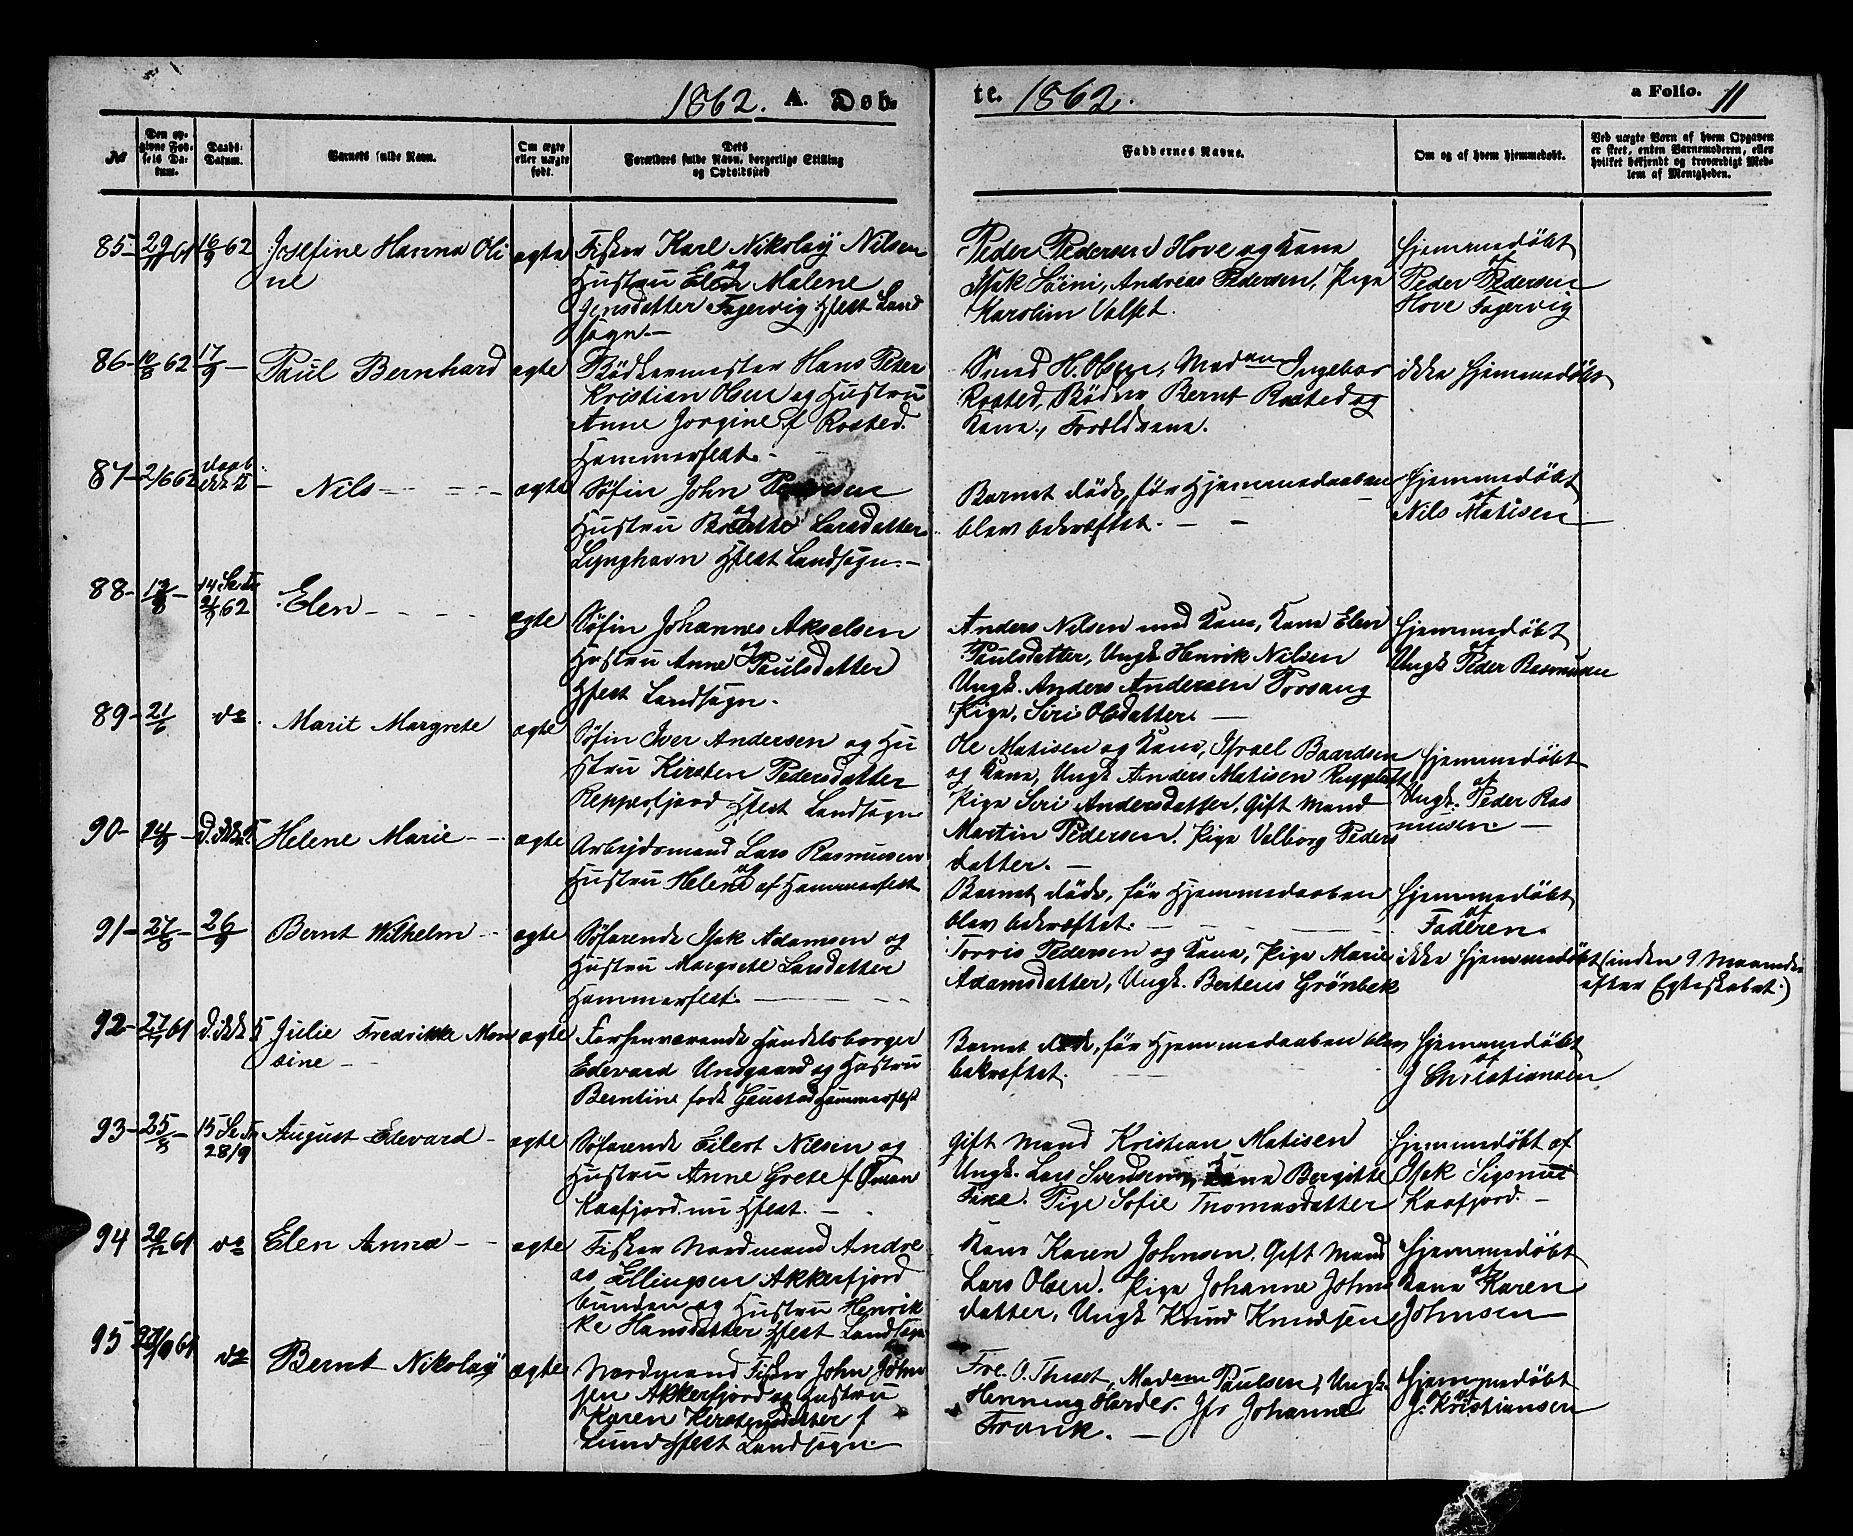 1862. A. Døb-
te. 1862. a Folio. 11
No
Den op-
givne Fød-
sels Da-
tum.
Daabs-
Datum.
Barnets fulde Navn.
Om ægte
eller uægte
født.
Dets
Forældres fulde Navn, borgerlige Stilling
og Opholdssted
Faddernes Navne.
Om og af hvem hjemmedøbt.
Ved uægte Børn af hvem Opgaven
er skeet, enten Barnemoderen, eller
hvilket bekjendt og troværdigt Med-
lem af Menigheden.
85- 29/11 61 16/9 62 Josefine Hanna Oli
ne
ægte
Fisker Karl Nikolay Nilsen
og
Hustru Elen Malene
Jensdatter Fagervig Hfest Land
sogn.-
Peder Pedersen Hove og Kone
Isak Søini, Andreas Pedersen, Pige
Karolin Valset.
Hjemmedøbt
af
Peder Pedersen
Hove Fagervig
86- 10/8 62 17/9 - Paul Bernhard ægte
Bödkermester Hans Peter
Kristian Olsen og Hustru
Anne Jorgine f Rosted.
Hammerfest. -
H. Olsen, Madam Ingebor
Rosted, Bödker Bernt Rosted og
Kone, Forældrene.
ikke hjemmedøbt
87- 2/6 62 daab.
ikke
- Nils - ægte
Søfin John
og
Hustru Larsdatter
Lynghavn Hfest Landsogn. -
Barnet døde, før Hjemmedaaben
blev bekræftet. - -
Hjemmedøbt
af
Nils Matisen
88- 14 Se Tr
21/9 62 Elen - ægte
Søfin Johannes Akselsen
og
Hustru Anne Paulsdatter
Hfest Landsogn.
Anders Nilsen med Kone, Kone Elen
Paulsdatter, Ungk. Henrik Nilsen
Ungk. Anders Andersen Porsang
Pige, Siri Olsdatter. -
Hjemmedøbt
af
Ungk Peder Rasmusen
89- 21/6 do. Marit Margrete ægte
Søfin Iver Andersen og Hu
stru Kirsten Pedersdatter
Repperfjord Hfest Landsogn
Ole Matisen og Kone, Israel Baardsen
og Kone, Ungk Anders Matisen
Pige Siri Andersdatter, Gift Mand
Martin Pedersen. Pige Valborg Peders
datter. -
Hjemmedøbt
af
Ungk. Peder Ras
musen. -
90- 14/9 - Helene Marie - ægte
Arbejdsmand Lars Rasmusen
og
Hustru Helene af Hammerfest
Barnet døde, før Hjemmedaaben
blev bekræftet. -
Hjemmedøbt
af
Faderen.
91- 27/8 - 26/9 Bernt Wilhelm - ægte
Søfarende Isak Adamsen og
Hustru Margrete Larsdatter
Hammerfest. -
Torris Pedersen og Kone, Pige Marie
Adamsdatter, Ungk. Berteus Grönbek
ikke hjemmedøbt (inden 9 Maaneder
efter Egteskabet.)
92- 27/ 61 D. ikke Julie Fredrikke Mon
sine -
ægte
Forhenværende Handelsborger
Edevard Undgaard og Hustru
Berntine født Gaustad Hammerfest
Barnet døde, før Hjemmedaaben blev
bekræftet.
Hjemmedøbt
af
J Christiansen
93- 25/8 - 15 Se Tr
28/9 August Edevard - ægte
Søfarende Eilert Nilsen og
Hustru Anne Grete f Öman
Kaafjord. nu Hfest. -
Gift Mand Kristian Matisen
Ungk. Lars Svendsen, Kone Bergitte
Fixe. Pige Sofie Thomasdatter
Hjemmedøbt af
Isak
Kaafjord. -
94 20/12 61 do Elen Anna - ægte
Fisker Nordmand Andre
as Ellingsen Akkerfjord
bunden og Hustru Henrik
ke Hansdatter Hfest Landsogn
Kone Karen Johnsen. Gift Mand
Lars Olsen. Pige Johanne Johns
datter, Ungk Knud Knudsen
Hjemmedøbt
af
Kone Karen
Johnsen
95 61 do Bernt Nikolay ægte
Nordmand Fisker John John
sen Akkerfjord og Hustru
Karen Kerstensdatter f
Lund Hfest Landsogn. -
Fre. O. Thuset, Madam Paulsen, Ungk.
Henning Harder. Jfr Johanne
Frank. -
Hjemmedøbt
af
J. Kristiansen